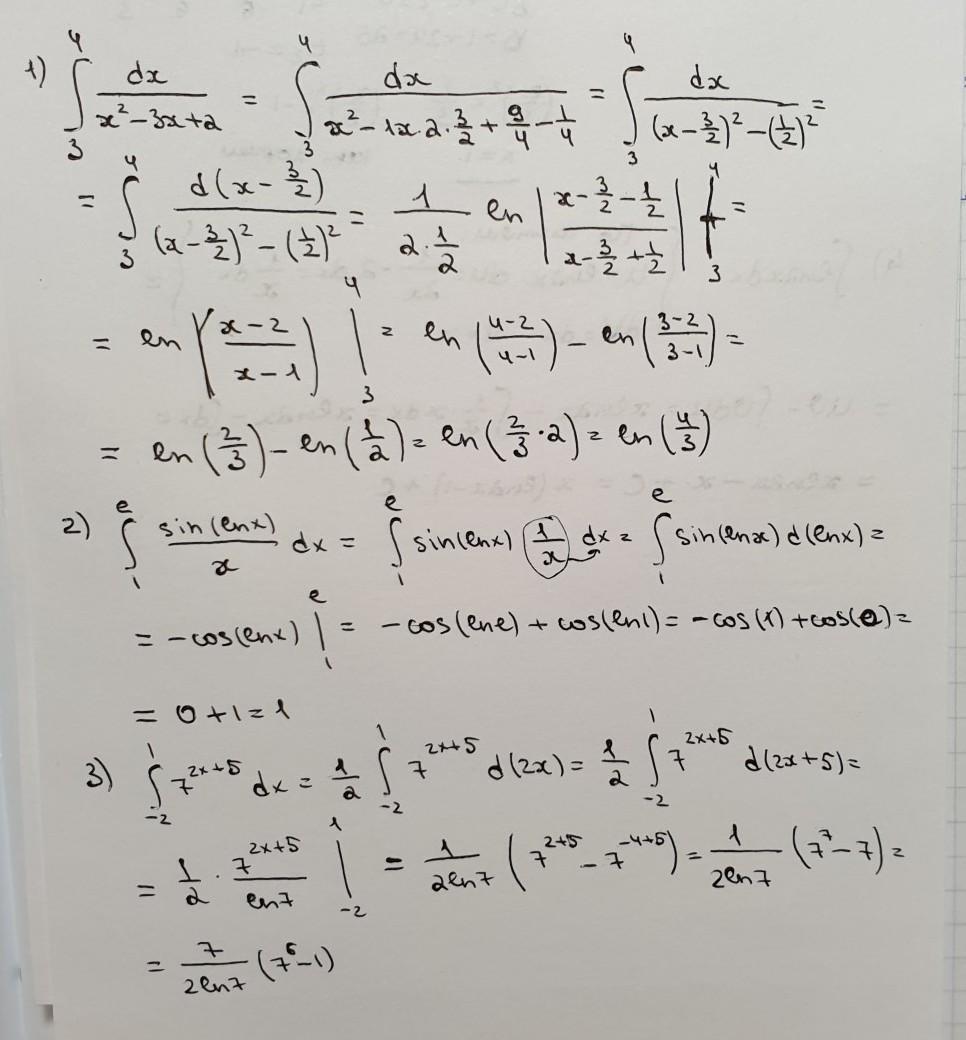 1) ∫₃⁴ dx/(x² − 3x + 2) = ∫₃⁴ dx/(x² − 1x·2·3/2 + 9/4 − 1/4) = ∫₃⁴ dx/((x − 3/2)² − (1/2)²) =
= ∫₃⁴ d(x − 3/2)/((x − 3/2)² − (1/2)²) = 1/(2·1/2) ln |(x − 3/2 − 1/2)/(x − 3/2 + 1/2)| |₃⁴ =
= ln ((x − 2)/(x − 1)) |₃⁴ = ln ((4−2)/(4−1)) − ln ((3−2)/(3−1)) =
= ln (2/3) − ln (1/2) = ln (2/3 · 2) = ln (4/3)
2) ∫₁ᵉ sin(lnx)/x dx = ∫₁ᵉ sin(lnx) (1/x) dx = ∫₁ᵉ sin(lnx) d(lnx) =
= −cos(lnx) |₁ᵉ = −cos(lne) + cos(ln1) = −cos(1) + cos(0) =
= 0 + 1 = 1
3) ∫₋₂¹ 7^(2x+5) dx = 1/2 ∫₋₂¹ 7^(2x+5) d(2x) = 1/2 ∫₋₂¹ 7^(2x+5) d(2x+5) =
= 1/2 · 7^(2x+5)/ln7 |₋₂¹ = 1/(2ln7) (7^(2+5) − 7^(−4+5)) = 1/(2ln7) (7⁷ − 7) =
= 7/(2ln7) (7⁶ − 1)